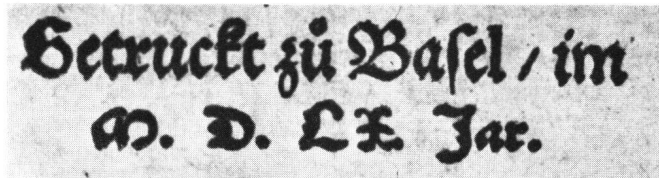 Getruckt zů Basel / im
M. D. LX. Jar.